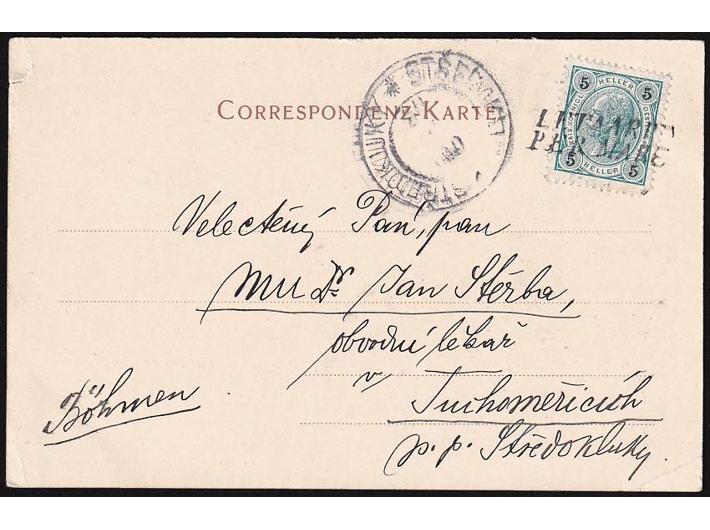 CORRESPONDENZ-KARTE
5 HELLER 5
5 HELLER 5
PER MARE
STŘEDOKLUKY
Velectěný Pan, pan
MUDr Jan Štěrba,
obvodní lékař
v Tuchoměřicích
p. p. Středokluky.
Böhmen